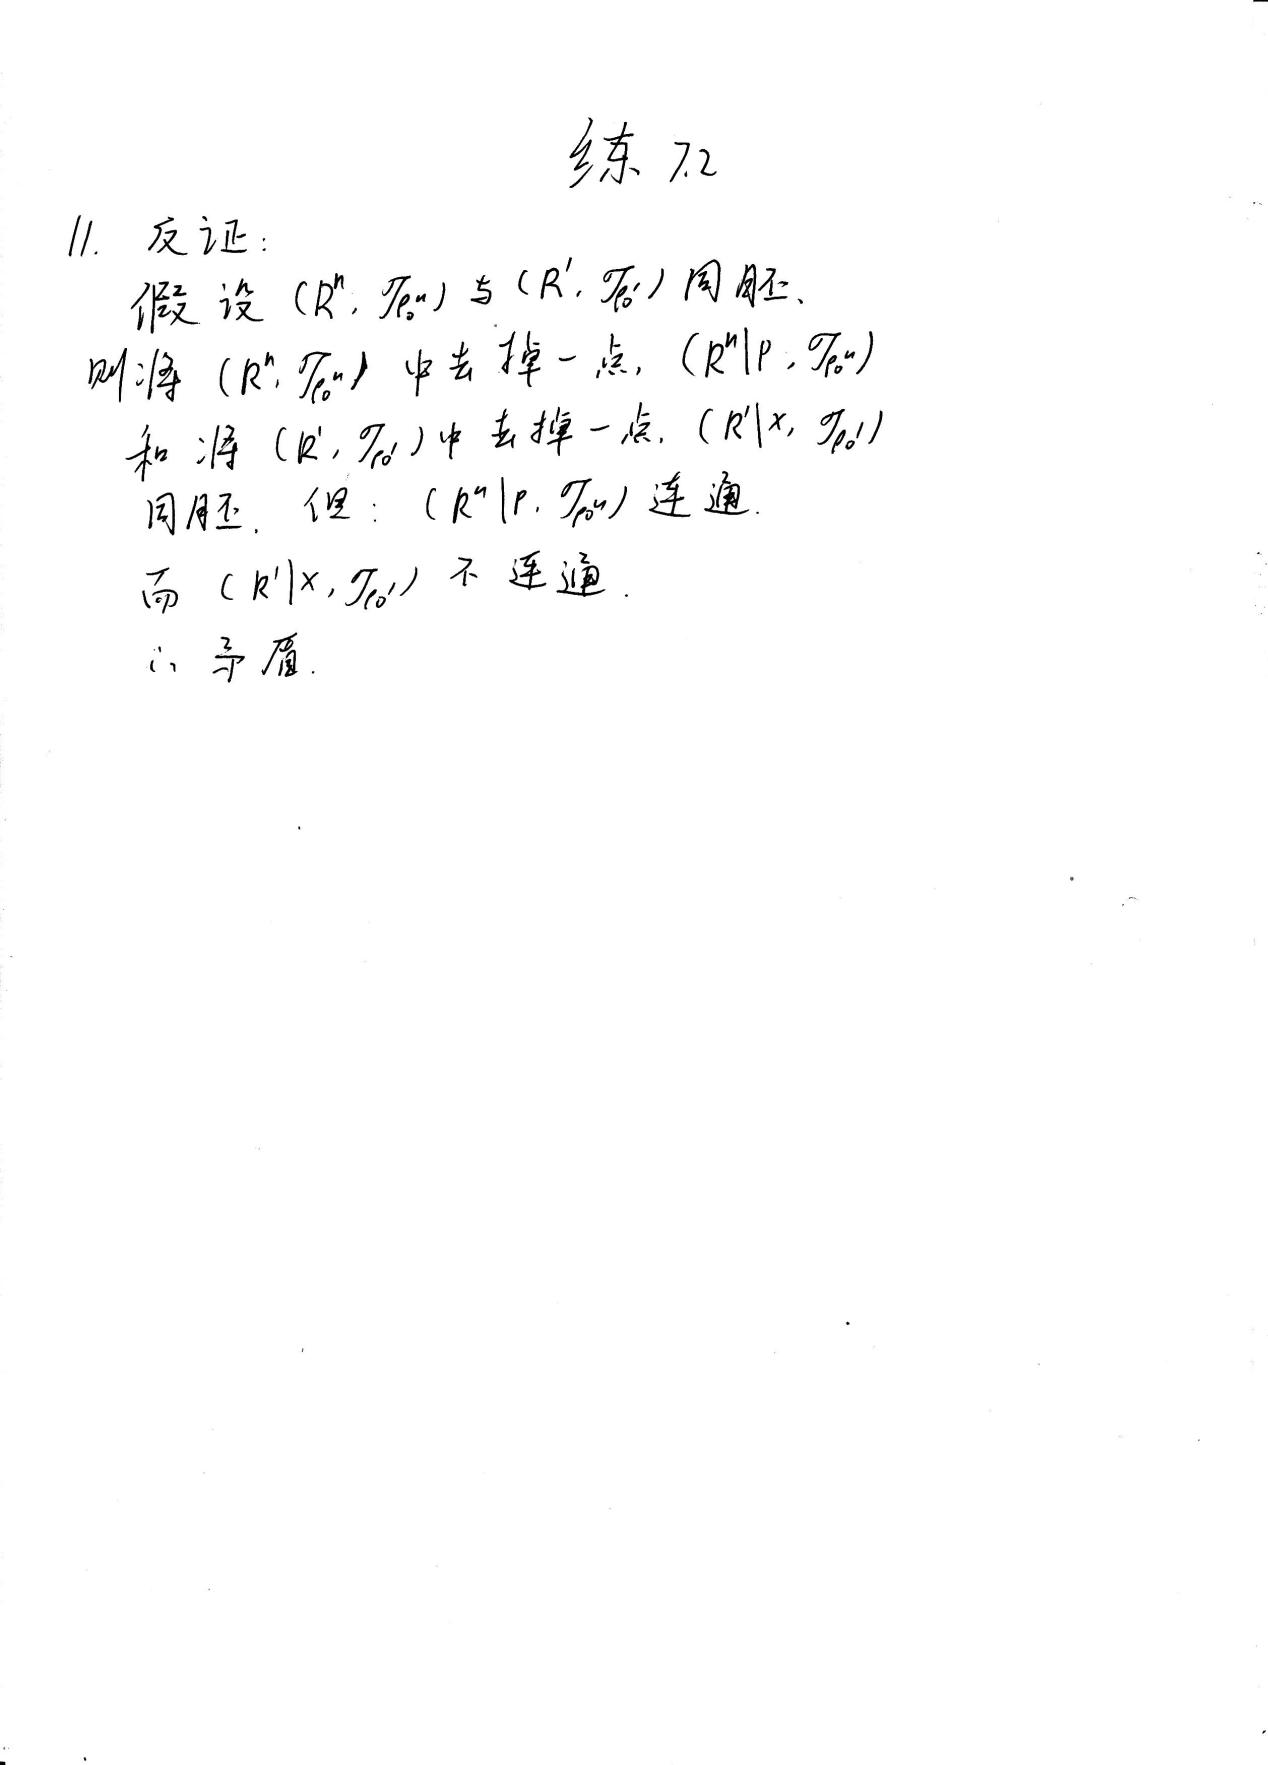 练 7.2
11. 反证:
假设 (Rⁿ, 𝒯ρ₀ⁿ) 与 (R¹, 𝒯ρ₀¹) 同胚、
则将 (Rⁿ, 𝒯ρ₀ⁿ) 中去掉一点, (Rⁿ|P, 𝒯ρ₀ⁿ)
和将 (R¹, 𝒯ρ₀¹) 中去掉一点, (R¹|x, 𝒯ρ₀¹)
同胚. 但: (Rⁿ|P, 𝒯ρ₀ⁿ) 连通.
而 (R¹|x, 𝒯ρ₀¹) 不连通.
∴ 矛盾.